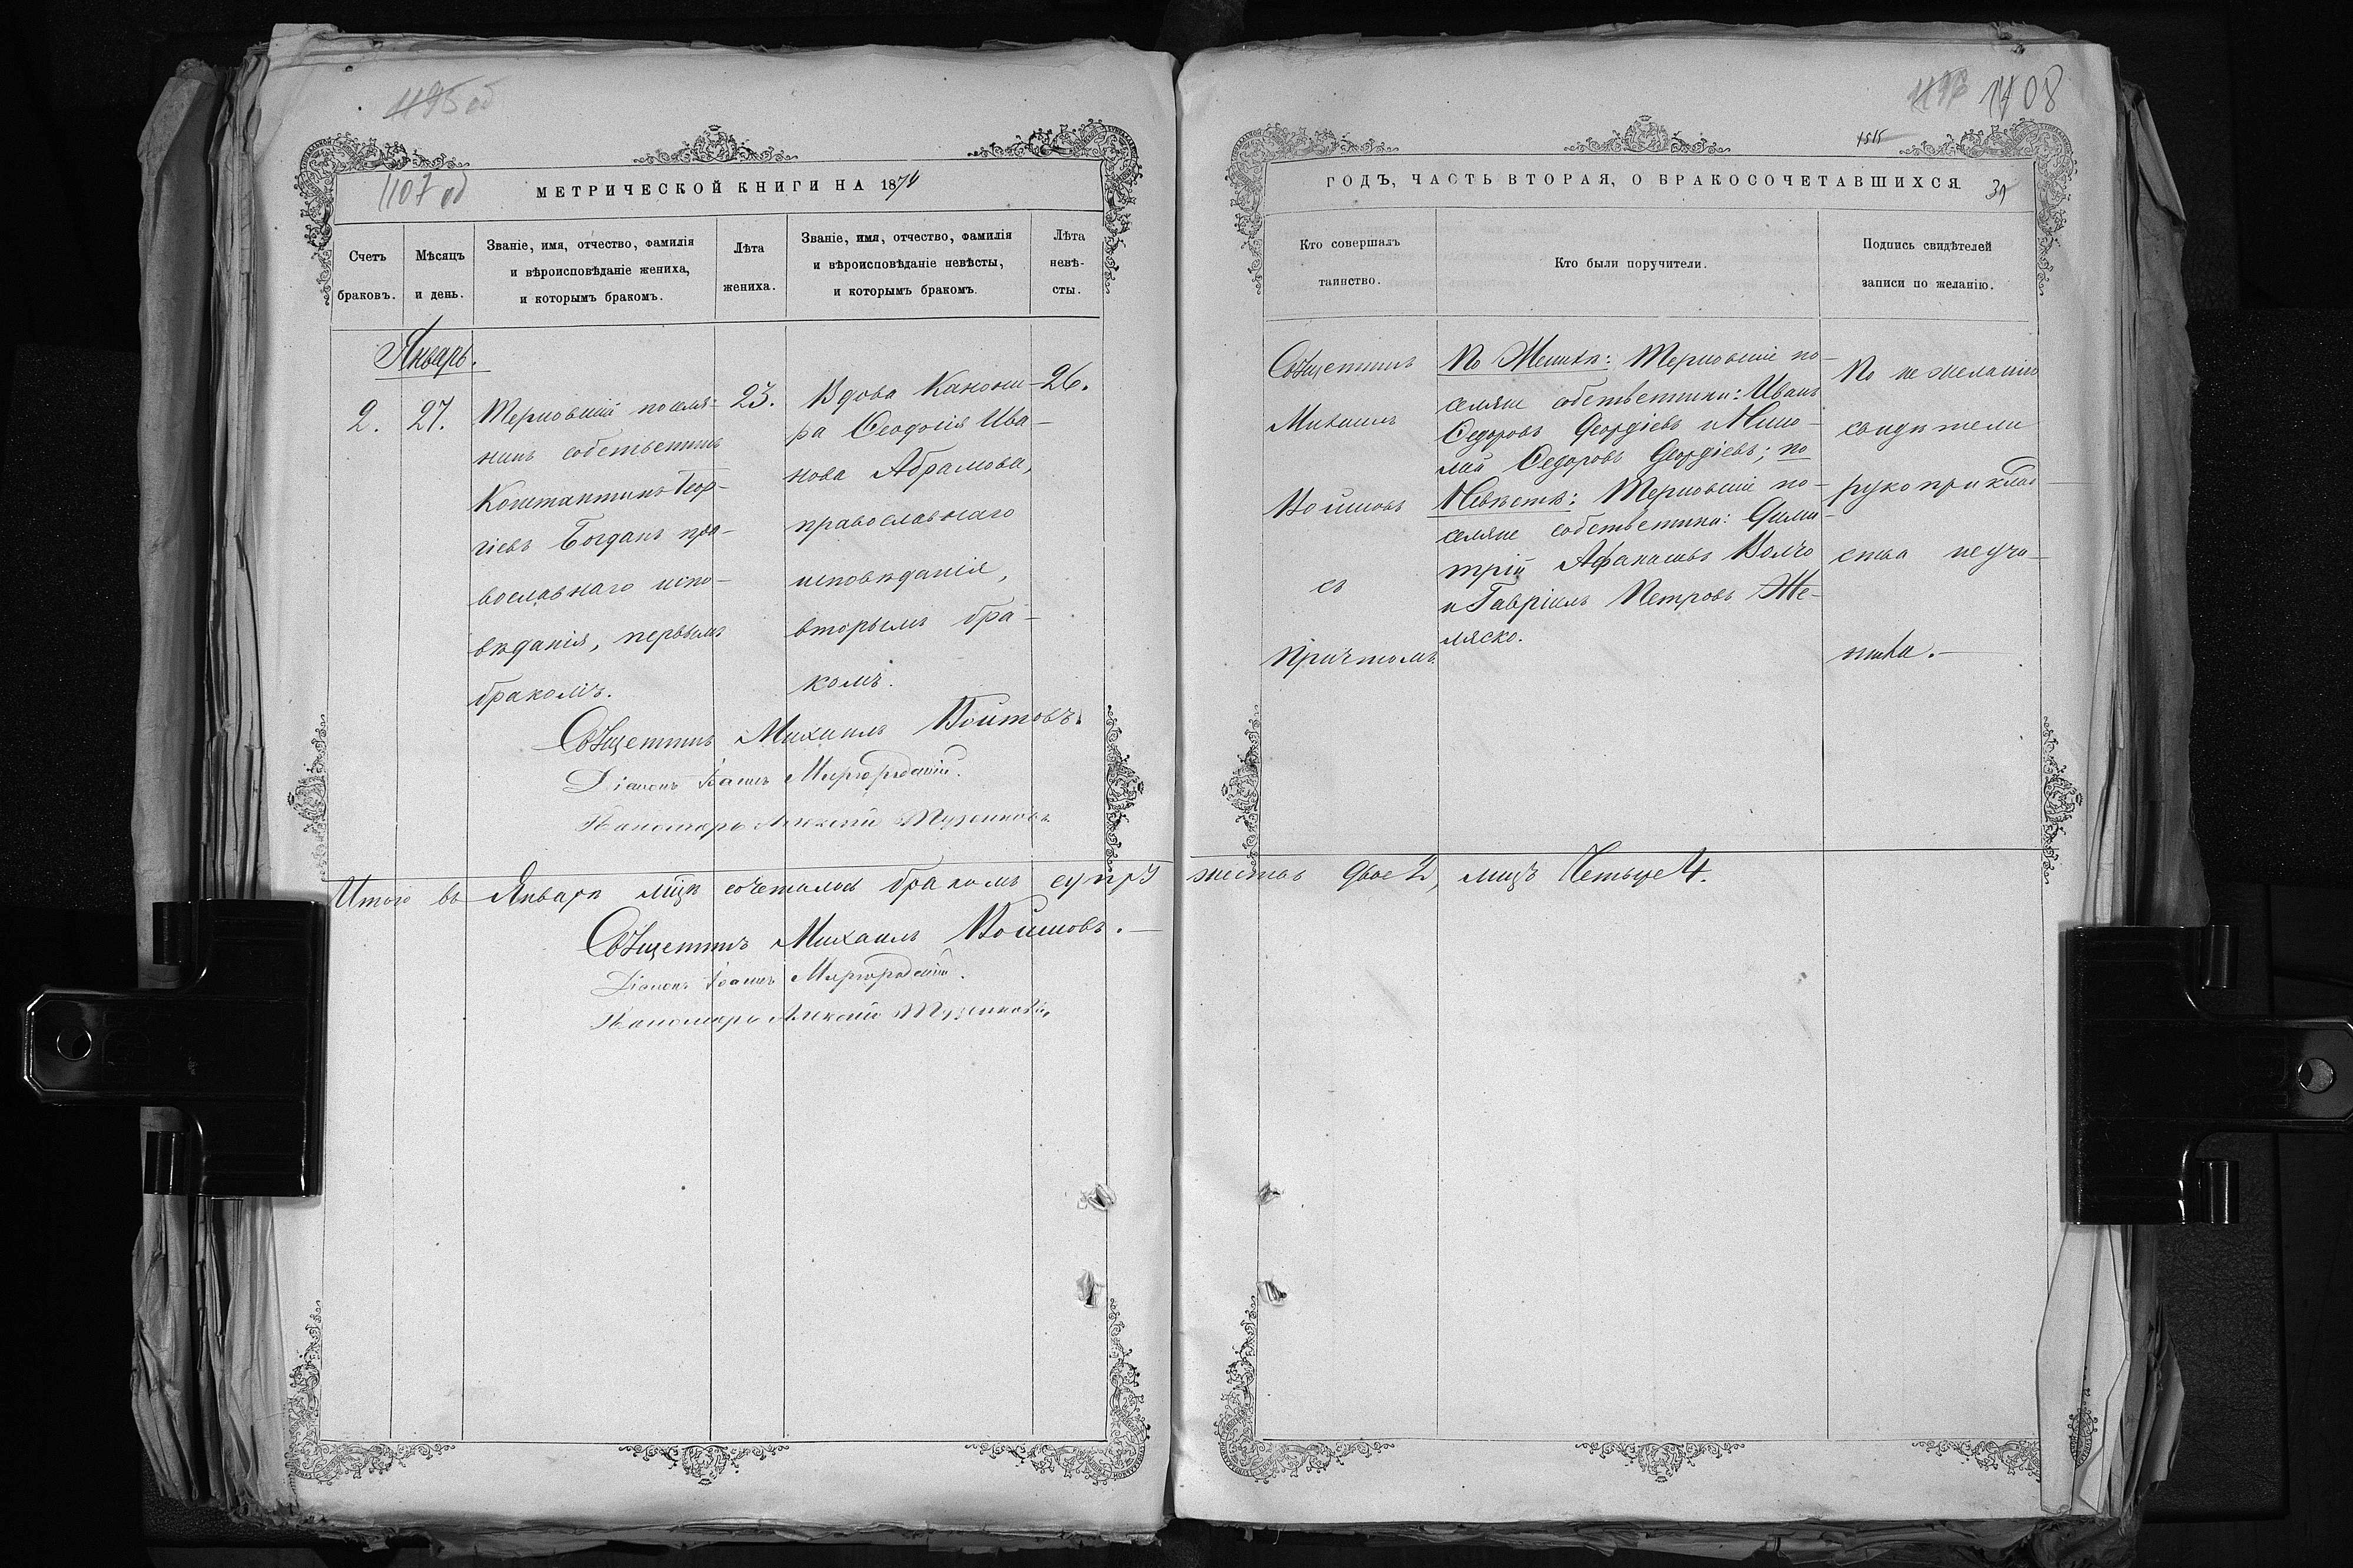 1195 об
1107 об
МЕТРИЧЕСКОЙ КНИГИ НА 1874
Счетъ
браковъ.
Мѣсяцъ
и день.
Званіе, имя, отчество, фамилія
и вѣроисповѣданіе жениха,
и которымъ бракомъ.
Лѣта
жениха.
Званіе, имя, отчество, фамилія
и вѣроисповѣданіе невѣсты,
и которымъ бракомъ.
Лѣта
невѣ-
сты.
Январь.
2.
27.
Терновскій поселя-
нинъ собственникъ
Константинъ Геор-
гіевъ Богданъ пра-
вославнаго испо-
вѣданія, первымъ
бракомъ.
23.
Вдова Канони-
ра Ѳеодосія Ива-
нова Абрамова,
православнаго
исповѣданія,
вторымъ бра-
комъ.
26.
Священникъ Михаилъ Войтовъ.
Діаконъ Іоаннъ Миргородскій.
Пономарь Алексій
Итого въ Январѣ мцѣ сочеталось бракомъ супру
Священникъ Михаилъ Войтовъ.
Діаконъ Іоаннъ Миргородскій.
Пономарь Алексій
1408
1515
ГОДЪ, ЧАСТЬ ВТОРАЯ, О БРАКОСОЧЕТАВШИХСЯ
Кто совершалъ
таинство.
Кто были поручители.
Подпись свидѣтелей
записи по желанію.
Священникъ
Михаилъ
Войтовъ
съ
причтомъ
По Женихѣ: Терновскіе по-
селяне собственники: Иванъ
Ѳедоровъ Георгіевъ и Нико-
лай Ѳедоровъ Георгіевъ; по
Невѣстѣ: Терновскіе по-
селяне собственники: Дими-
трій Афанасьевъ Волчо
и Гавріилъ Петровъ Же-
ляско.
По не желанію
свидѣтели
рукоприклад-
ства не учи-
нили.
жествъ двое 2, лицъ Четыре 4.